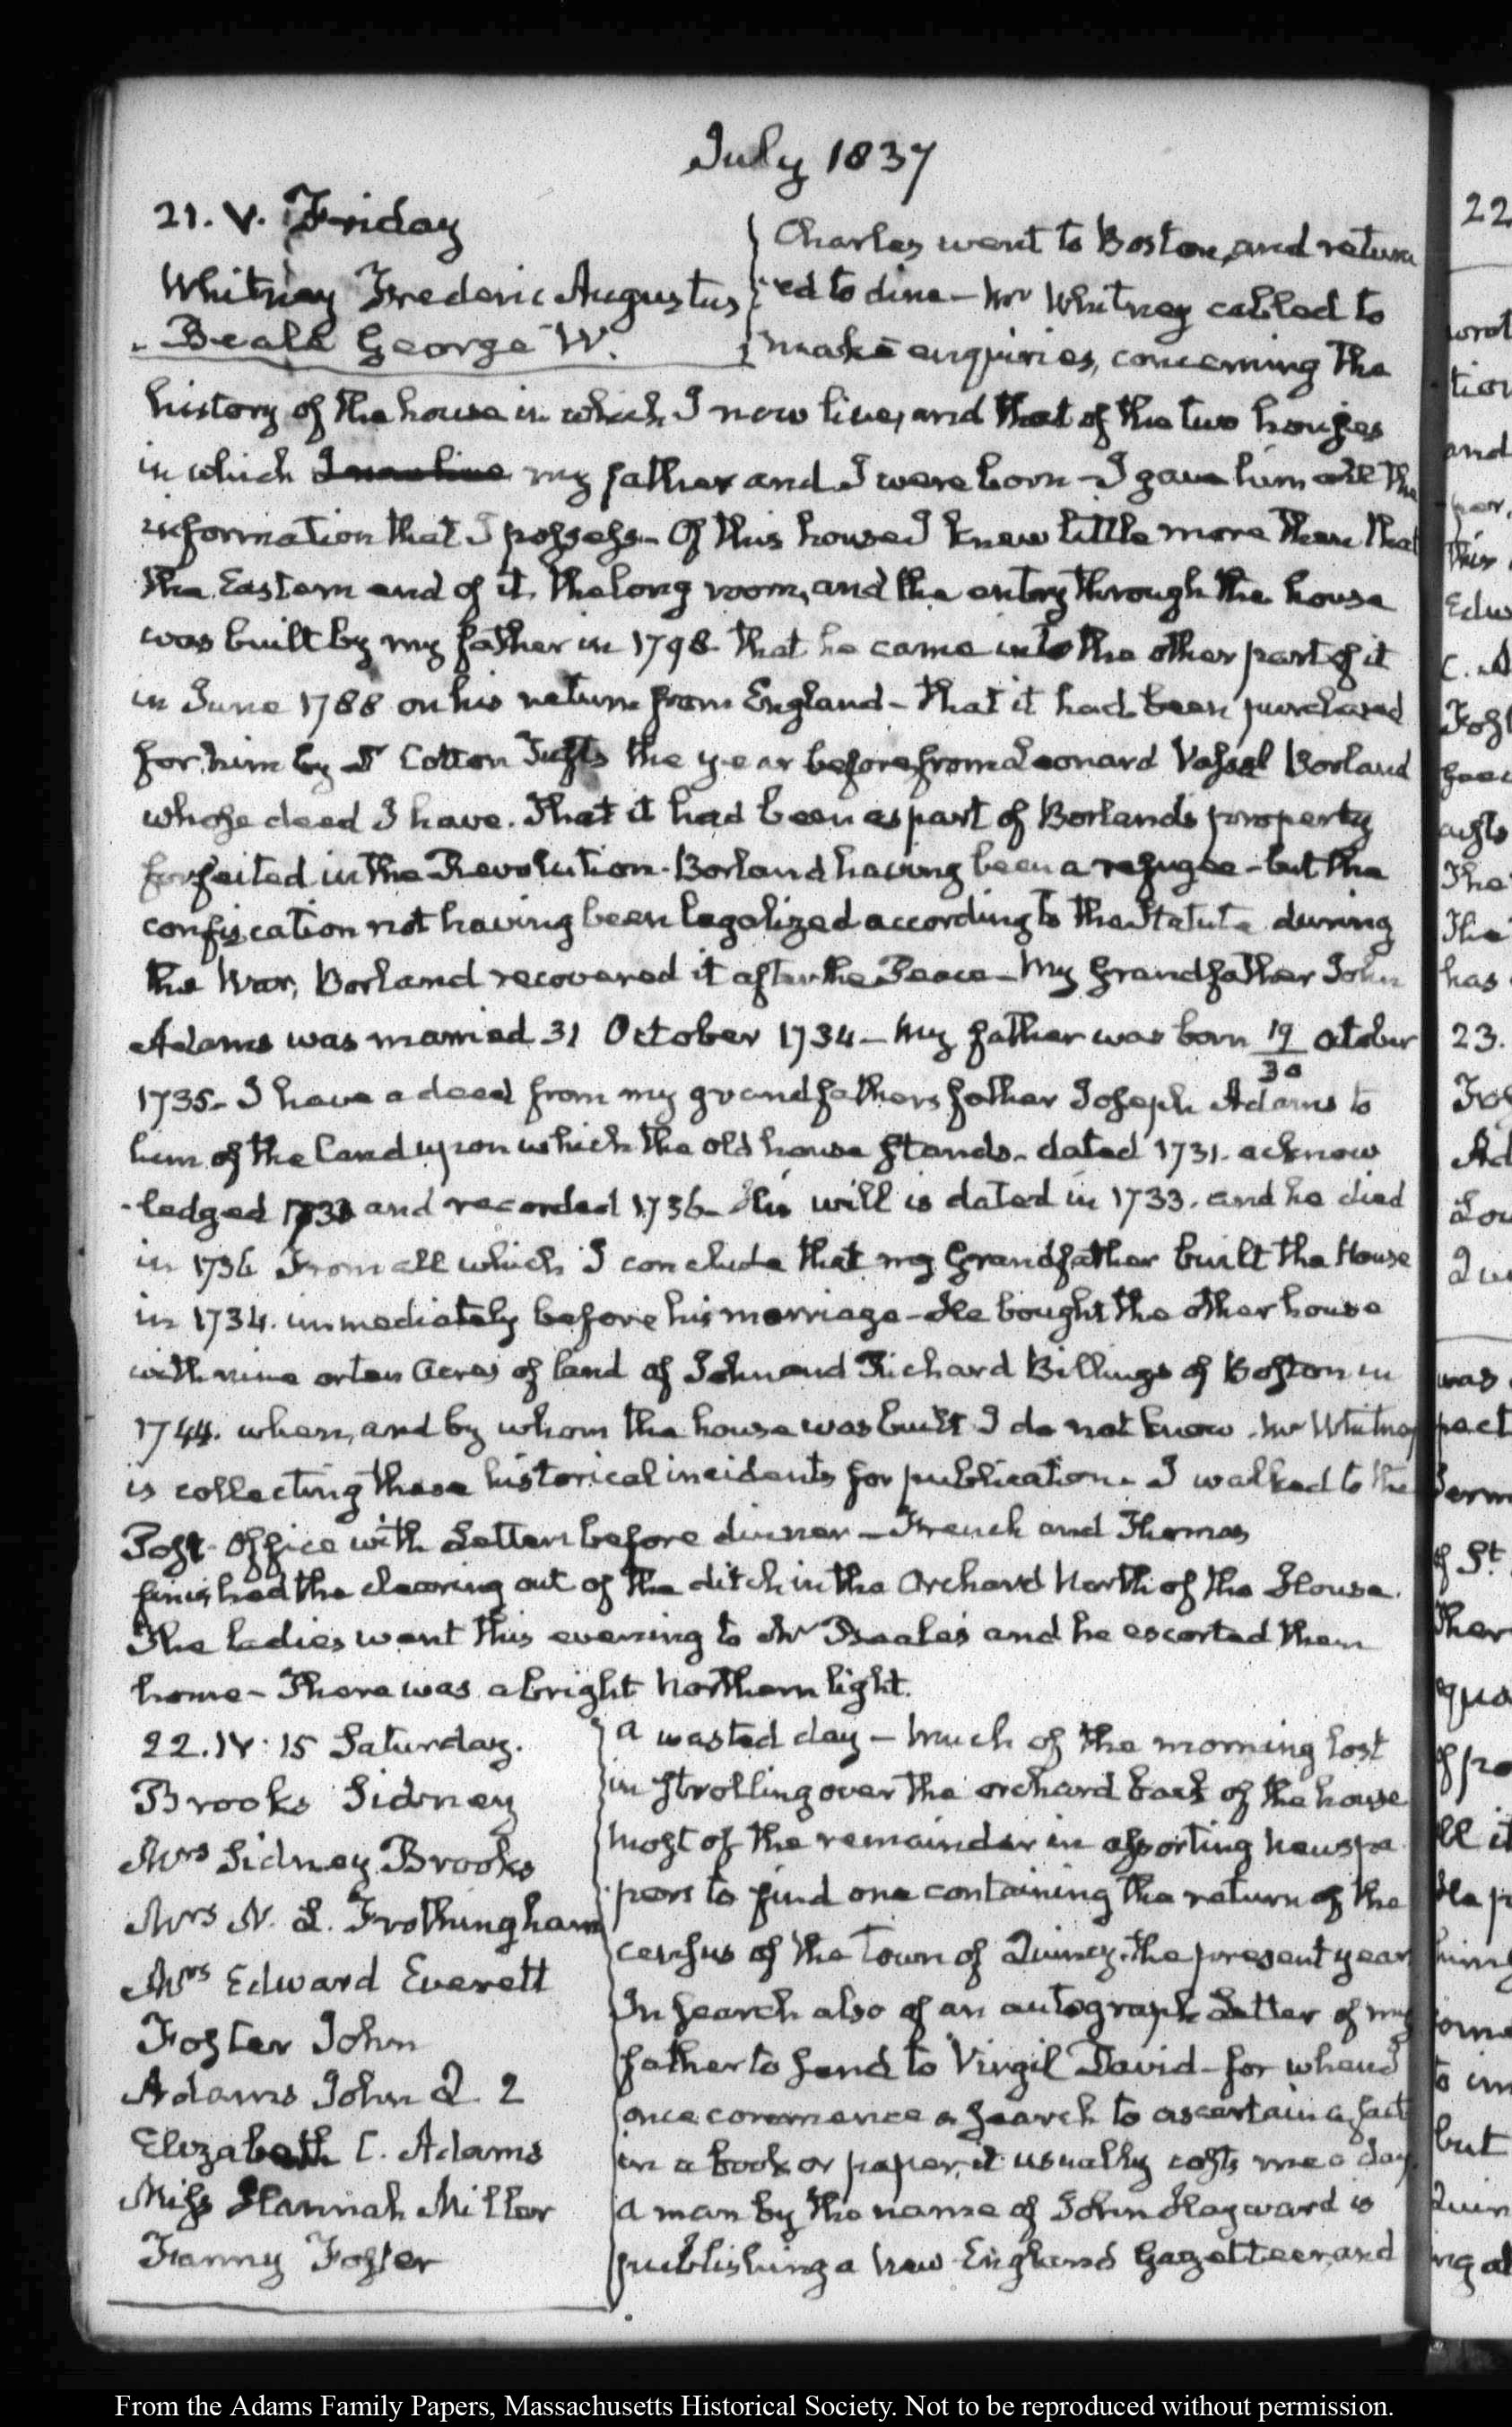 July 1837
21. V. Friday
Whitney Frederic Augustus
Beale George W.
Charles went to Boston, and return
ed to dine — Mr Whitney called to
make enquiries, concerning the
history of the house in which I now live, and that of the two houses
in which I now live my father and I were born — I gave him all the
information that I possess — Of this house I knew little more than that
the Eastern end of it, the long room, and the entry through the house
was built by my father in 1798 that he came into the other part of it
in June 1788 on his return from England — that it had been purchased
for him by Dr Cotton Tufts the year before from Leonard Vassal Borland
whose deed I have. That it had been as part of Borland's property
forfeited in the Revolution. Borland having been a refugee — but the
confiscation not having been legalized according to the Statute during
the War, Borland recovered it after the Peace — My Grandfather John
Adams was married 31 October 1734 — My father was born 19/30 October
1735 — I have a deed from my grandfathers father Joseph Adams to
him of the land upon which the old house stands — dated 1731. acknow
ledged and recorded 1736 — His will is dated in 1733. and he died
in 1736 From all which I conclude that my Grandfather built the House
in 1734. immediately before his marriage — He bought the other house
with nine or ten Acres of land of John and Richard Billings of Boston in
1744. when, and by whom the house was built I do not know. Mr Whitney
is collecting these historical incidents for publication. I walked to the
Post-Office with Letters before dinner — French and Thomas
finished the clearing out of the ditch in the Orchard North of the House.
The ladies went this evening to Mr Beale's and he escorted them
home — There was a bright Northern light.
22. IV:15 Saturday.
Brooks Sidney
Mrs Sidney Brooks
Mrs N. L. Frothingham
Mrs Edward Everett
Foster John
Adams John Q. 2
Elizabeth C. Adams
Miss Hannah Miller
Fanny Foster
A wasted day — Much of the morning lost
in strolling over the orchard back of the house
Most of the remainder in assorting Newspa
pers to find one containing the return of the
census of the Town of Quincy, the present year
In search also of an autograph Letter of my
father to send to Virgil David — for when I
once commence a search to ascertain a fact
in a book or paper, it usually costs me a day.
A man by the name of John Hayward is
publishing a New England Gazetteer, and
22
and
this
Edw
The
The
has
23.
Ad
was
pect
of St.
ll it
but
From the Adams Family Papers, Massachusetts Historical Society. Not to be reproduced without permission.